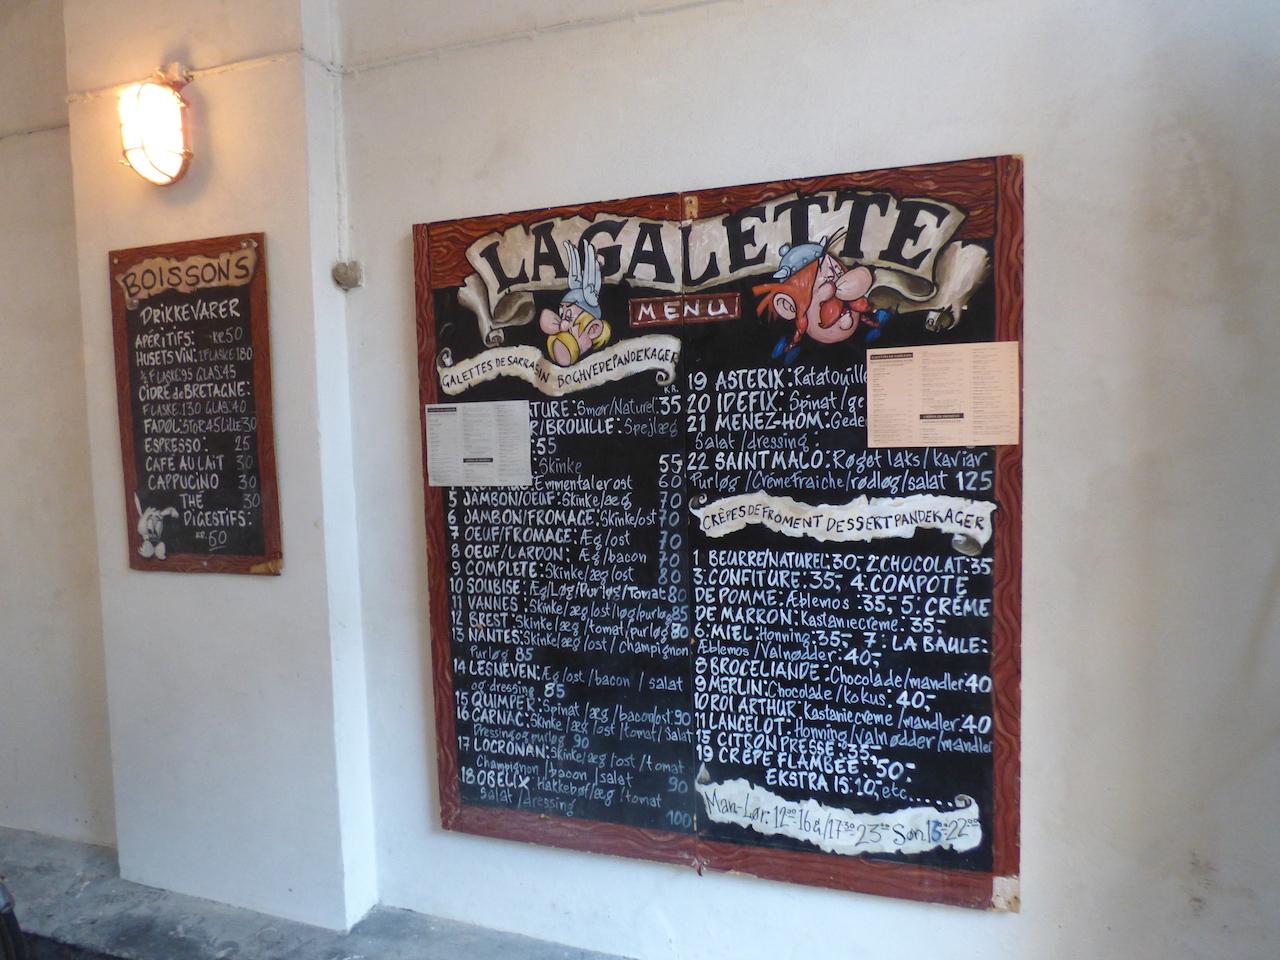 BOISSONS
DRIKKEVARER
APÉRITIFS: kr.50
HUSETS VIN: 1 FLASKE 180
½ FLASKE 95 GLAS: 45
CIDRE de BRETAGNE:
FLASKE: 130 GLAS: 40
FADØL: STOR 45 LILLE 30
ESPRESSO: 25
CAFÉ AU LAIT 30
CAPPUCINO 30
THÉ 30
DIGESTIFS:
KR. 50
LA GALETTE
MENU
GALETTES DE SARRASIN BOGHVEDEPANDEKAGER
KR.
TURE: Smør/Naturel: 35
R/BROUILLE: Spejlæg
: 55
: Skinke 55
Emmentaler ost 60
5 JAMBON/OEUF: Skinke/æg 70
6 JAMBON/FROMAGE: Skinke/ost 70
7 OEUF/FROMAGE: Æg/ost 70
8 OEUF/LARDON: Æg/bacon 70
9 COMPLETE: Skinke/æg/ost 80
10 SOUBISE: Æg/Løg/Purløg/Tomat 80
11 VANNES: Skinke/æg/ost/løg/purløg 85
12 BREST: Skinke/æg/tomat/purløg 80
13 NANTES: Skinke/æg/ost/Champignon
Purløg 85
14 LESNEVEN: Æg/ost/bacon/salat
og dressing 85
15 QUIMPER: Spinat/æg/bacon/ost: 90
16 CARNAC: Skinke/æg/ost/tomat/Salat
Dressing og purløg 90
17 LOCRONAN: Skinke/æg/ost/tomat
Champignon/bacon/salat 90
18 OBELIX: Hakkebøf/æg/tomat
Salat/dressing 100
19 ASTERIX: Ratatouille
20 IDEFIX: Spinat/ge
21 MENEZ-HOM: Gede
Salat/dressing:
22 SAINT MALO: Røget laks/kaviar
Purløg/Crémefraiche/rødløg/salat 125
CRÊPES DE FROMENT DESSERTPANDEKAGER
1 BEURRE/NATUREL: 30,- 2 CHOCOLAT: 35
3. CONFITURE: 35,- 4. COMPOTE
DE POMME: Æblemos 35,- 5: CRÉME
DE MARRON: Kastaniecreme: 35,-
6: MIEL: Honning: 35,- 7: LA BAULE:
Æblemos/Valnødder: 40,-
8 BROCELIANDE: Chocolade/mandler 40
9 MERLIN: Chocolade/kokus: 40,-
10 ROI ARTHUR: Kastaniecreme/mandler: 40
11 LANCELOT: Honning/valnødder/mandler
15 CITRON PRESSE: 35,-
19 CRÊPE FLAMBÉE: 50,-
EKSTRA IS: 10,- etc......
Man-Lør: 12⁰⁰-16 & 17³⁰ 23⁰⁰ Søn 13-22⁰⁰